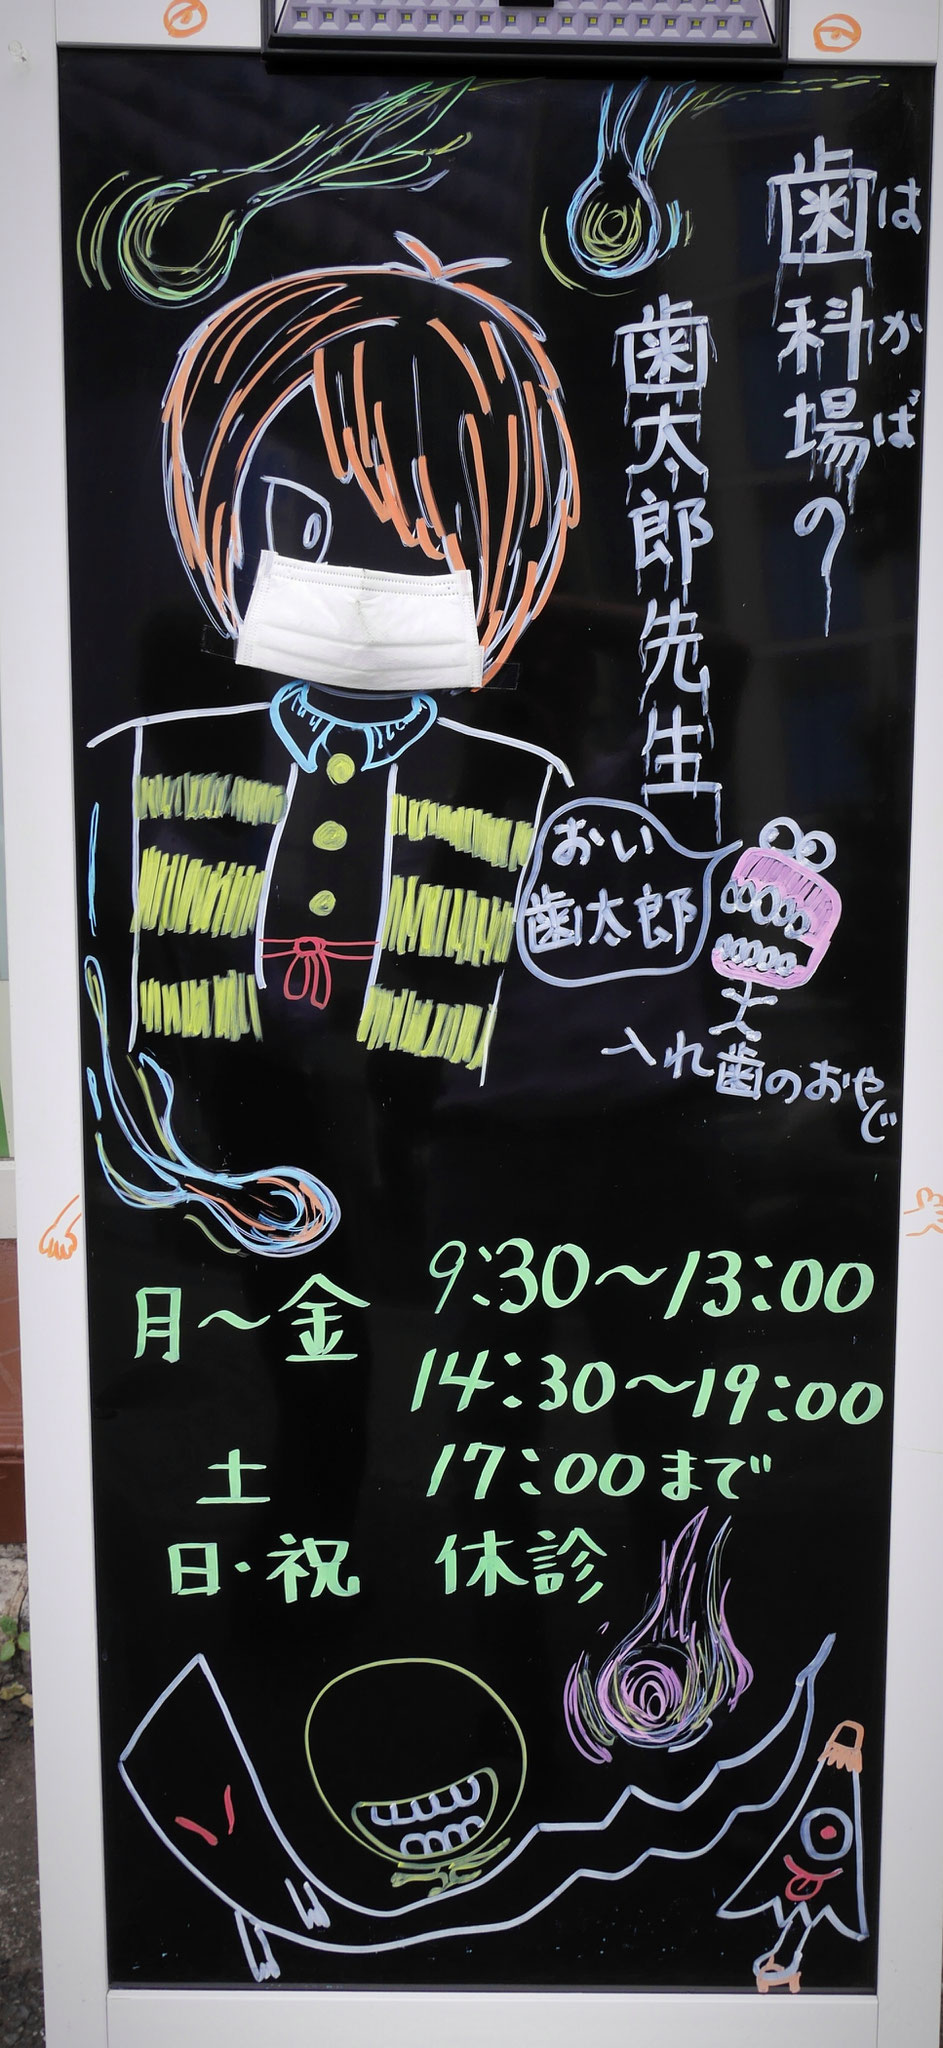 歯科場の
はかば
歯太郎先生
おい
歯太郎
入れ歯のおやじ
月〜金 9:30〜13:00
14:30〜19:00
土 17:00まで
日・祝 休診